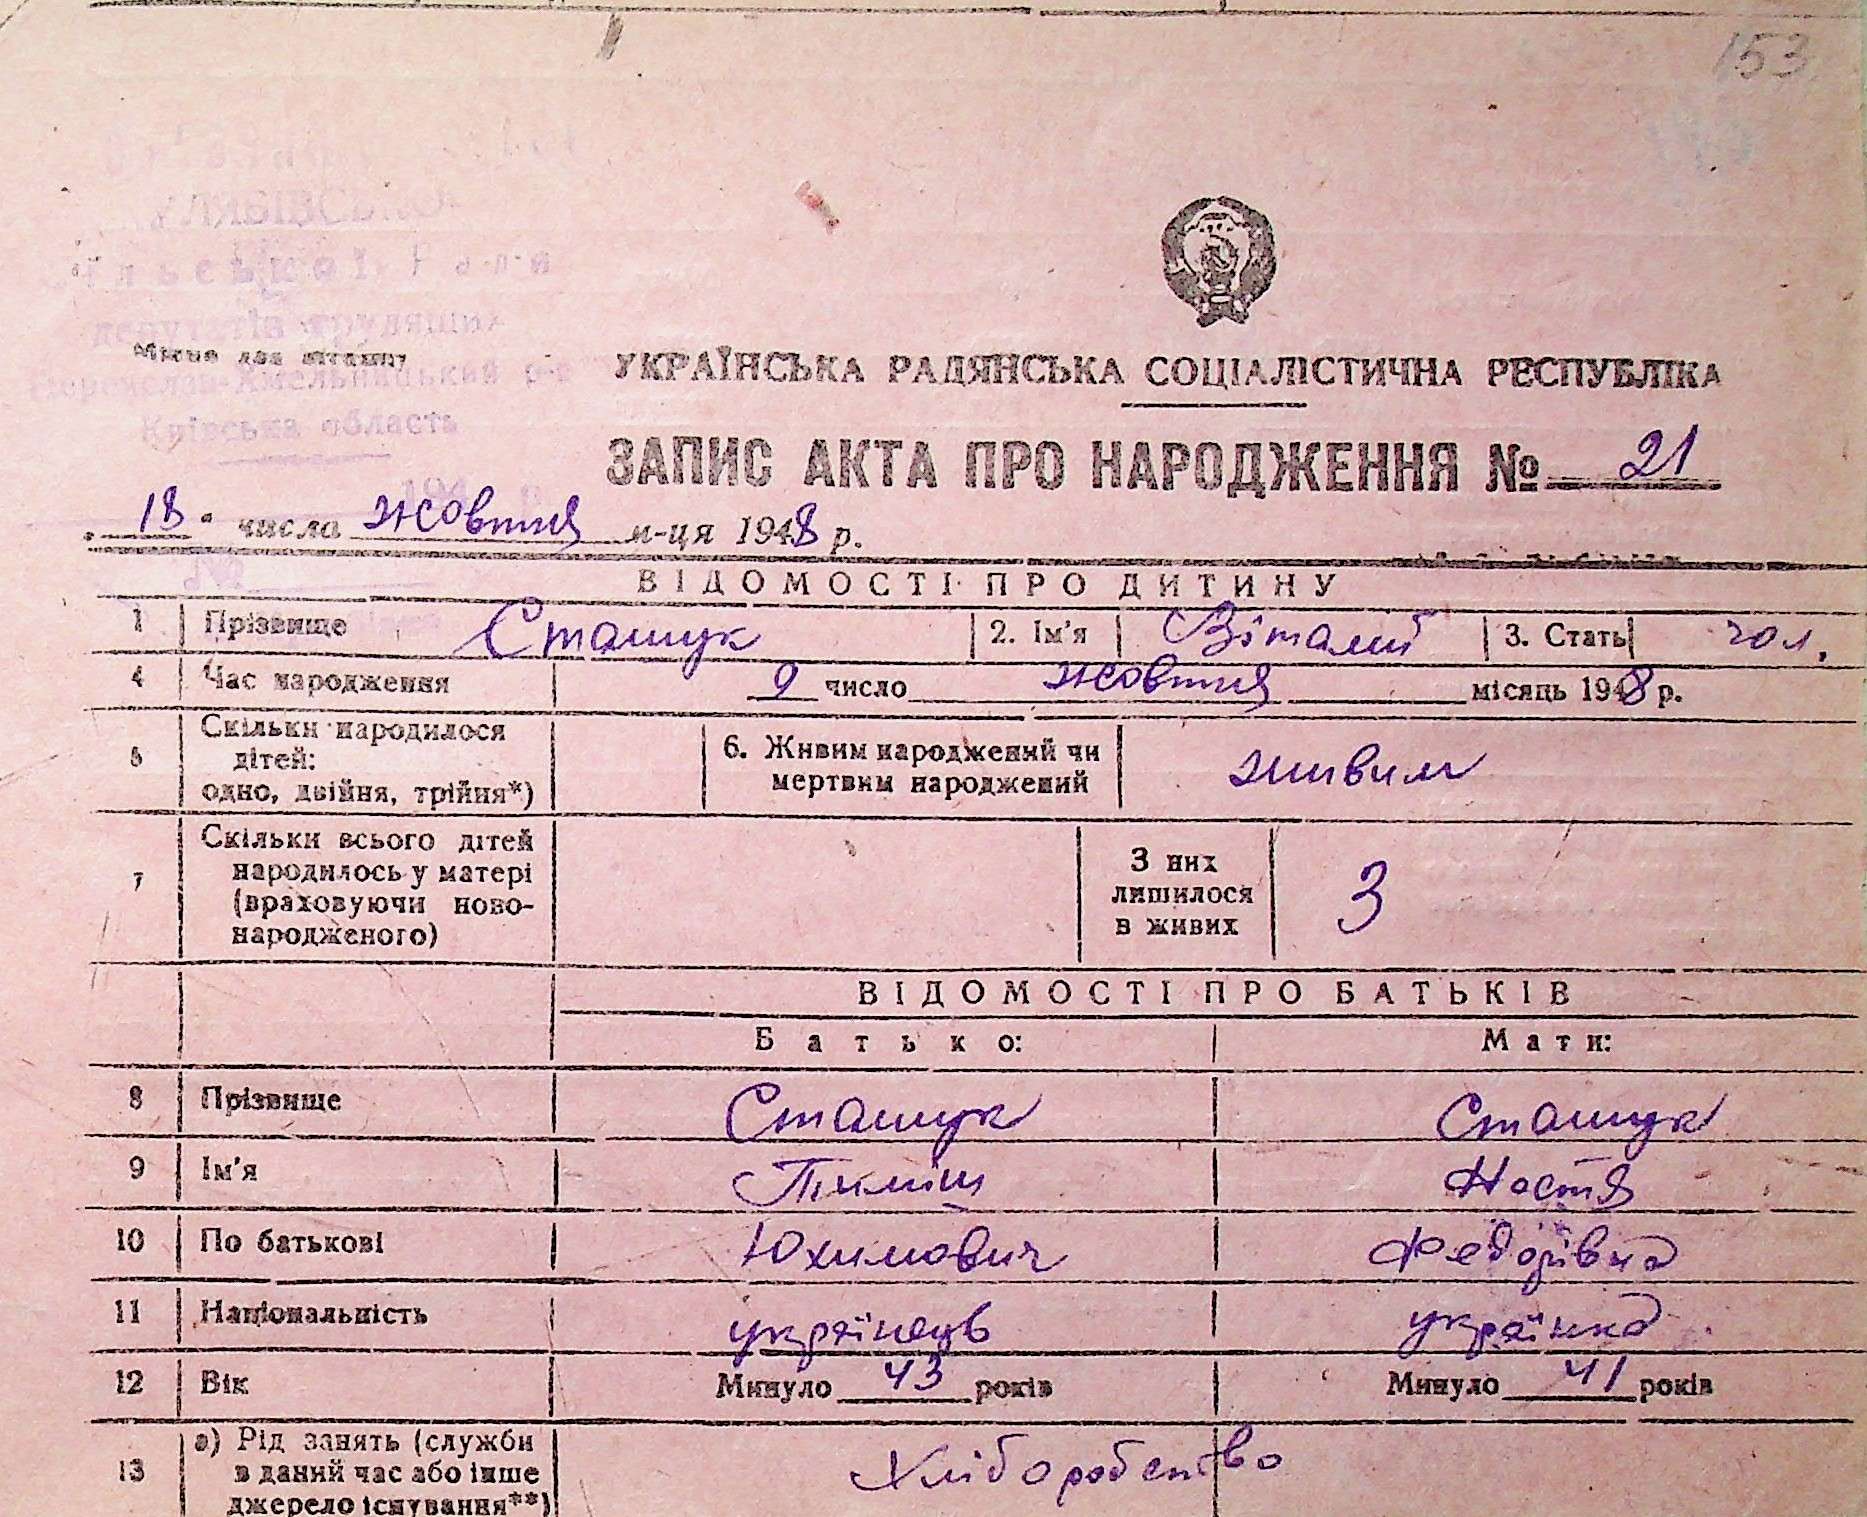 153
УЛЯБІВСЬКОЇ
депутатів трудящих
Місце для штампу
Переяслав-Хмельницький р-н
Київська область
УКРАЇНСЬКА РАДЯНСЬКА СОЦІАЛІСТИЧНА РЕСПУБЛІКА
ЗАПИС АКТА ПРО НАРОДЖЕННЯ № 21
18 числа жовтня м-ця 1948 р.
ВІДОМОСТІ ПРО ДИТИНУ
1 Прізвище Сташук 2. Ім'я Віталий 3. Стать чол.
4 Час народження 9 число жовтня місяць 1948 р.
5 Скільки народилося дітей: одно, двійня, трійня*) 6. Живим народжений чи мертвим народжений живим
7 Скільки всього дітей народилось у матері (враховуючи новонародженого) З них лишилося в живих 3
ВІДОМОСТІ ПРО БАТЬКІВ
Батько: Мати:
8 Прізвище Сташук Сташук
9 Ім'я Тиміш Настя
10 По батькові Юхимович Федорівна
11 Національність українець українка
12 Вік Минуло 43 років Минуло 41 років
13 а) Рід занять (служби в даний час або інше джерело існування**) Хліборобство